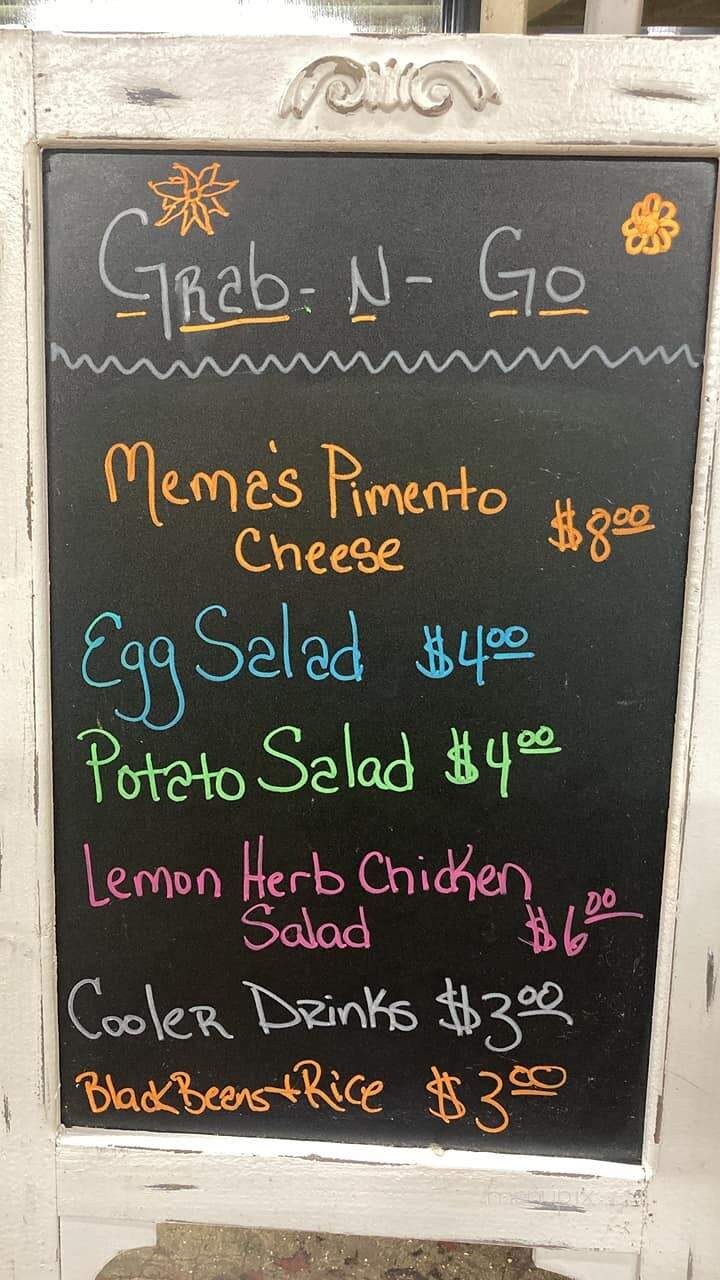 Grab-N-Go
Mema's Pimento
Cheese $8.00
Egg Salad $4.00
Potato Salad $4.00
Lemon Herb Chicken
Salad $6.00
Cooler Drinks $3.00
Black Beans + Rice $3.00
menupix